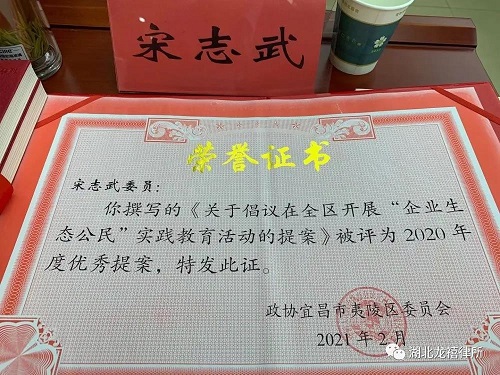 宋志武
荣誉证书
宋志武委员：
你撰写的《关于倡议在全区开展“企业生
态公民”实践教育活动的提案》被评为2020年
度优秀提案，特发此证。
政协宜昌市夷陵区委员会
2021年2月
湖北龙禧律所